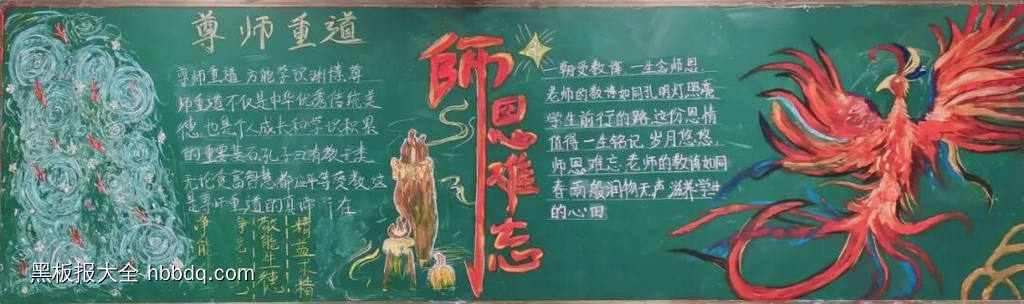 尊师重道
尊师重道,方能学识渊博,尊
师重道不仅是中华优秀传统美
德,也是个人成长和学识积累
的重要基石,孔子云有教无类
无论贫富智慧,都应平等受教,这
是尊师重道的真谛所在
净能
争色
敬能生德
精益求精
师恩难忘
一朝受教诲,一生念师恩,
老师的教诲如同孔明灯照亮
学生前行的路,这份恩情
值得一生铭记,岁月悠悠,
师恩难忘,老师的教诲如同
春雨般润物无声滋养学生
的心田
黑板报大全 hbbdq.com